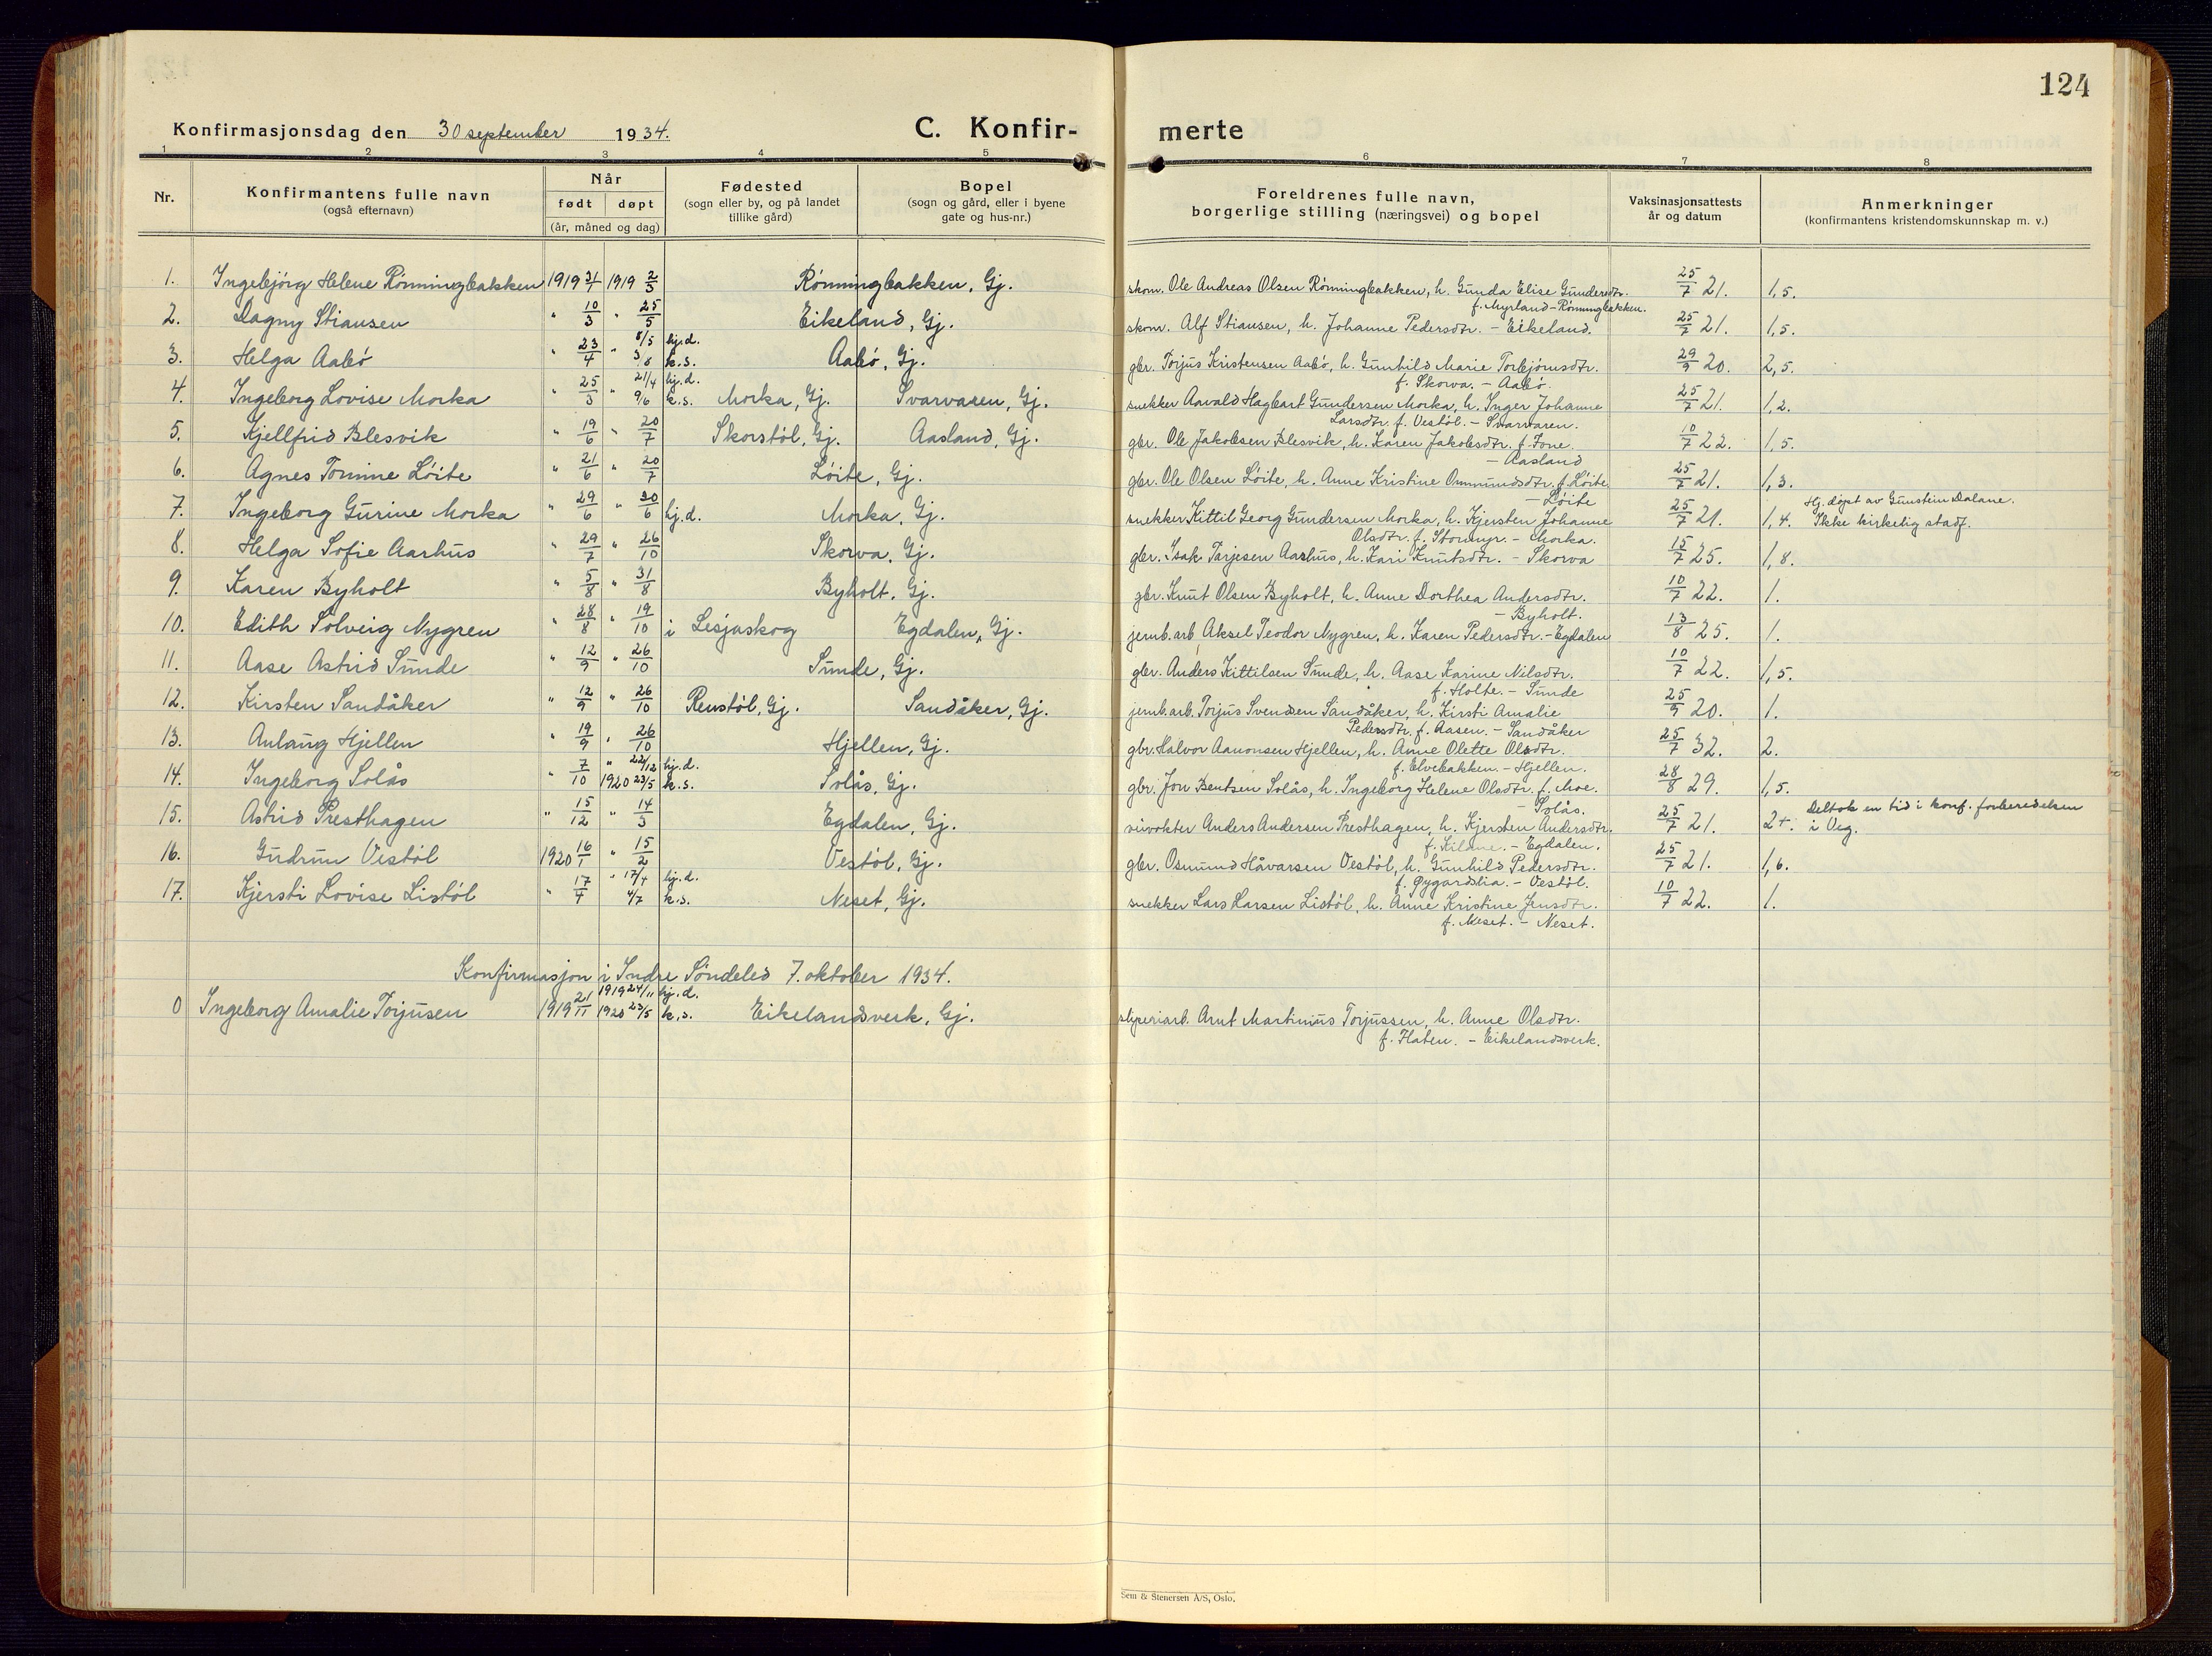 124
Konfirmasjonsdag den 30 september 1934. C. Konfir- merte
1 2 3 4 5 6 7 8
Nr. Konfirmantens fulle navn (også efternavn) Når født døpt (år, måned og dag) Fødested (sogn eller by, og på landet tillike gård) Bopel (sogn og gård, eller i byene gate og hus-nr.) Foreldrenes fulle navn, borgerlige stilling (næringsvei) og bopel Vaksinasjonsattests år og datum Anmerkninger (konfirmantens kristendomskunnskap m. v.)
1. Ingebjörg Helene Rönningbakken 1919 31/1 1919 2/3 Rönningbakken, Gj. skom. Ole Andreas Olsen Rönningbakken, h. Gunda Elise Gundersdtr. 25/7 21. 1,5.
f. Myrland - Rönningbakken.
2. Dagny Stiansen " 10/3 " 25/5 Eikeland, Gj. skom. Alf Stiansen, h. Johanne Pedersdtr. - Eikeland. 25/7 21. 1,5.
3. Helga Aabö " 23/4 " 8/5 hj.d. 3/8 k.s. Aabö, Gj. gbr. Torjus Kristensen Aabö, h. Gunhild Marie Torbjörnsdtr. 29/9 20. 2,5.
f. Skorva. - Aabö.
4. Ingeborg Lovise Morka " 25/3 " 21/4 hj.d. 9/6 k.s. Morka, Gj. Svarvaren, Gj. snekker Aavald Hagbart Gundersen Morka, h. Inger Johanne 25/7 21. 1,2.
Larsdtr. f. Vestöl. - Svarvaren.
5. Kjellfrid Blesvik " 19/6 " 20/7 Skorstöl, Gj. Aasland, Gj. gbr. Ole Jakobsen Blesvik, h. Karen Jakobsdtr. f. Fone. 10/7 22. 1,5.
- Aasland
6. Agnes Tomine Löite " 21/6 " 20/7 Löite, Gj. gbr. Ole Olsen Löite, h. Anne Kristine Ommundsdtr. f. Löite 25/7 21. 1,3.
- Löite
7. Ingeborg Gurine Morka " 29/6 " 30/6 hj.d. Morka, Gj. snekker Kittil Georg Gundersen Morka, h. Kjersten Johanne 25/7 21. 1,4. Hj. döpt av Gunstein Dalane. Ikke kirkelig stadf.
Olsdtr. f. Stormyr. - Morka.
8. Helga Sofie Aarhus " 29/7 " 26/10 Skorva, Gj. gbr. Isak Tarjesen Aarhus, h. Kari Knutsdtr. - Skorva 15/7 25. 1,8.
9. Karen Byholt " 5/8 " 31/8 Byholt, Gj. gbr. Knut Olsen Byholt, h. Anne Dorthea Andersdtr. 10/7 22. 1.
- Byholt.
10. Edith Solveig Nygren " 28/8 " 19/10 i Lesjaskog Egdalen, Gj. jernb.arb Aksel Teodor Nygren, h. Karen Pedersdtr. - Egdalen 13/8 25. 1.
11. Aase Astrid Sunde " 12/9 " 26/10 Sunde, Gj. gbr. Anders Kittilsen Sunde, h. Aase Karine Nilsdtr. 10/7 22. 1,5.
f. Holte. - Sunde
12. Kirsten Sandåker " 12/9 " 26/10 Renstöl, Gj. Sandåker, Gj. jernb.arb. Torjus Svendsen Sandåker, h. Kirsti Amalie 25/9 20. 1.
Pedersdtr. f. Aasen. - Sandåker
13. Anlaug Hjellen " 19/9 " 26/10 Hjellen, Gj. gbr. Halvor Aanonsen Hjellen, h. Anne Olette Olsdtr. 25/7 32. 2.
f. Elvebakken. - Hjellen.
14. Ingeborg Solås " 7/10 " 22/12 hj.d. 1920 23/5 k.s. Solås, Gj. gbr. Jon Bentsen Solås, h. Ingeborg Helene Olsdtr. f. Moe. 28/8 29. 1,5.
- Solås.
15. Astrid Presthagen " 15/12 " 14/3 Egdalen, Gj. Anders Andersen Presthagen, h. Kjersten Andersdtr. 25/7 21. 2+. Deltok en tid i konf. forberedelsen i Veg.
f. Kilane. - Egdalen.
16. Gudrun Vestöl 1920 16/1 " 15/2 Vestöl, Gj. gbr. Osmund Håvarsen Vestöl, h. Gunhild Pedersdtr. 25/7 21. 1,6.
f. Øygardslia. - Vestöl.
17. Kjersti Lovise Listöl " 17/4 " 17/4 hj.d. 4/7 k.s. Neset, Gj. snekker Lars Larsen Listöl, h. Anne Kristine Jensdtr. 10/7 22. 1.
f. Neset. - Neset.
Konfirmasjon i Indre Söndeled 7. oktober 1934.
0 Ingeborg Amalie Torjusen 1919 21/11 1919 24/11 hj.d. 1920 23/5 k.s. Eikelandsverk, Gj. sliperiarb. Arnt Martinius Torjussen, h. Anne Olsdtr.
f. Flaten. - Eikelandsverk.
Sem & Stenersen A/S, Oslo.